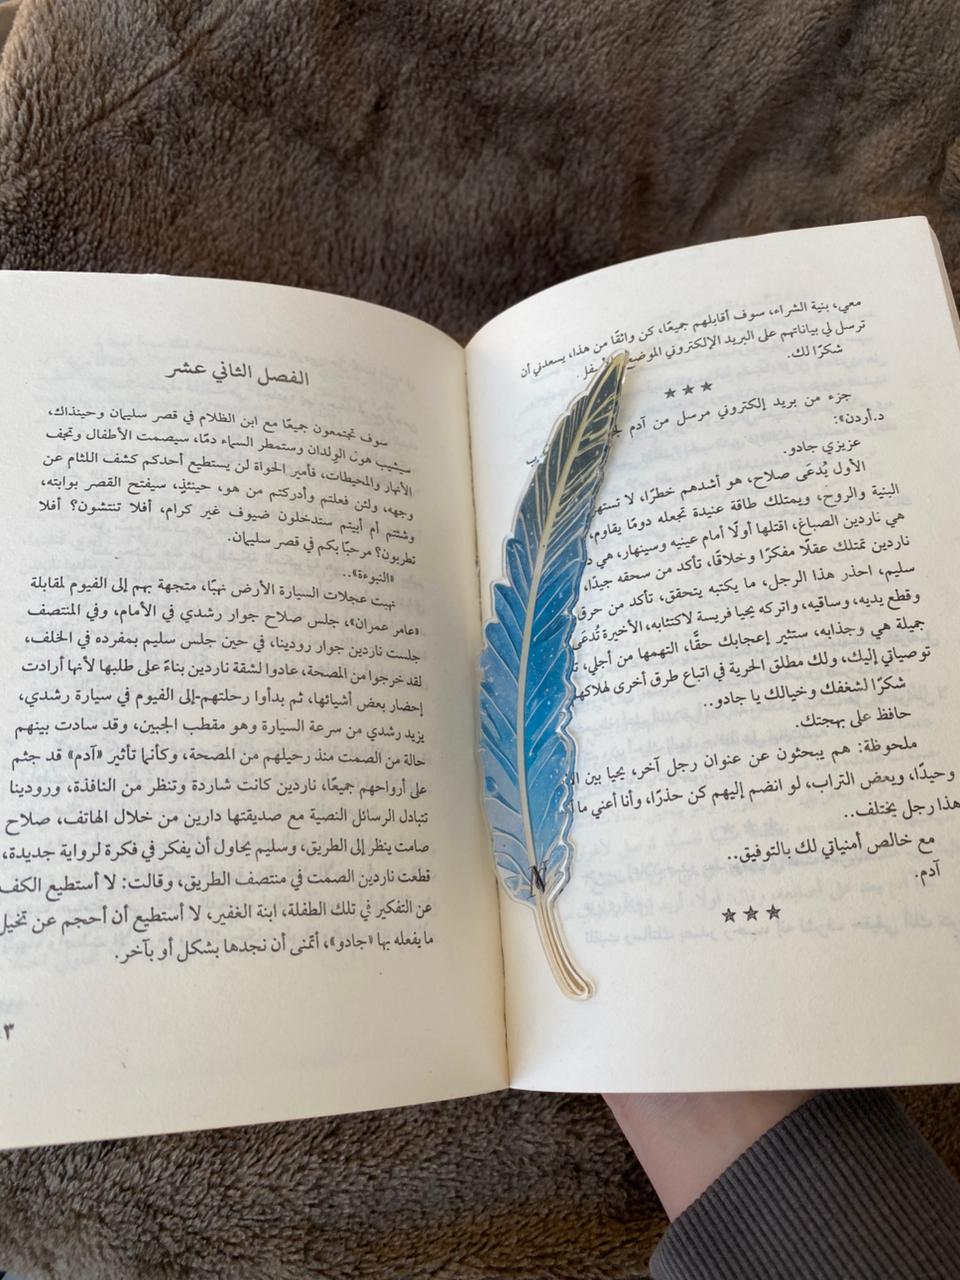 معي، بنية الشراء، سوف أقابلهم جميعًا، كن واثقًا من هذا، يسعدني أن
ترسل لي بياناتهم على البريد الإلكتروني
شكرًا لك.
***
جزء من بريد إلكتروني مرسل من آدم
د.أردن»:
عزيزي جادو.
الأول يُدعَى صلاح، هو أشدهم خطرًا، لا
البنية والروح، ويمتلك طاقة عنيدة تجعله دومًا يقاوم،
هي ناردين الصباغ، اقتلها أولًا أمام عينيه وسينهار، هي
ناردين تمتلك عقلًا مفكرًا وخلاقًا، تأكد من سحقه جيدًا،
سليم، احذر هذا الرجل، ما يكتبه يتحقق، تأكد من حرق
وقطع يديه، وساقيه، واتركه يحيا فريسة لاكتئابه، الأخيرة تُدعَى
جميلة هي وجذابه، ستثير إعجابك حقًّا، التهمها من أجلي،
توصياتي إليك، ولك مطلق الحرية في اتباع طرق أخرى لهلاكهم
شكرًا لشغفك وخيالك يا جادو..
حافظ على بهجتك.
ملحوظة: هم يبحثون عن عنوان رجل آخر، يحيا بين
وحيدًا، وبعض التراب، لو انضم إليهم كن حذرًا، وأنا أعني ما
هذا رجل يختلف..
مع خالص أمنياتي لك بالتوفيق..
آدم.
***
الفصل الثاني عشر
سوف تجتمعون جميعًا مع ابن الظلام في قصر سليمان وحينذاك،
سيشيب هول الولدان وستمطر السماء دمًا، سيصمت الأطفال وتجف
الأنهار والمحيطات، فأمير الحواة لن يستطيع أحدكم كشف اللثام عن
وجهه، ولئن فعلتم وأدركتم من هو، حينئذٍ، سيفتح القصر بوابته،
وشئتم أم أبيتم ستدخلون ضيوف غير كرام، أفلا تنتشون؟ أفلا
تطربون؟ مرحبًا بكم في قصر سليمان.
«النبوءة»..
نهبت عجلات السيارة الأرض نهبًا، متجهة بهم إلى الفيوم لمقابلة
«عامر عمران»، جلس صلاح جوار رشدي في الأمام، وفي المنتصف
جلست ناردين جوار رودينا، في حين جلس سليم بمفرده في الخلف،
لقد خرجوا من المصحة، عادوا لشقة ناردين بناءً على طلبها لأنها أرادت
إحضار بعض أشيائها، ثم بدأوا رحلتهم إلى الفيوم في سيارة رشدي،
يزيد رشدي من سرعة السيارة وهو مقطب الجبين، وقد سادت بينهم
حالة من الصمت منذ رحيلهم من المصحة، وكأنما تأثير «آدم» قد جثم
على أرواحهم جميعًا، ناردين كانت شاردة وتنظر من النافذة، ورودينا
تتبادل الرسائل النصية مع صديقتها دارين من خلال الهاتف، صلاح
صامت ينظر إلى الطريق، وسليم يحاول أن يفكر في فكرة لرواية جديدة،
قطعت ناردين الصمت في منتصف الطريق، وقالت: لا أستطيع الكف
عن التفكير في تلك الطفلة، ابنة الغفير، لا أستطيع أن أحجم عن تخيل
ما يفعله بها «جادو»، أتمنى أن نجدها بشكل أو بآخر.
٣
N